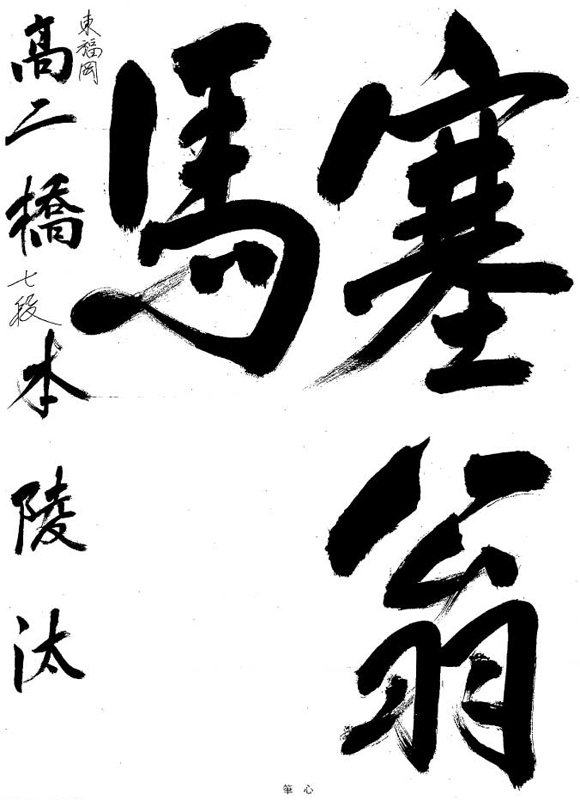 塞翁
馬
東福岡
高二 橋本陵汰
七段
筆心